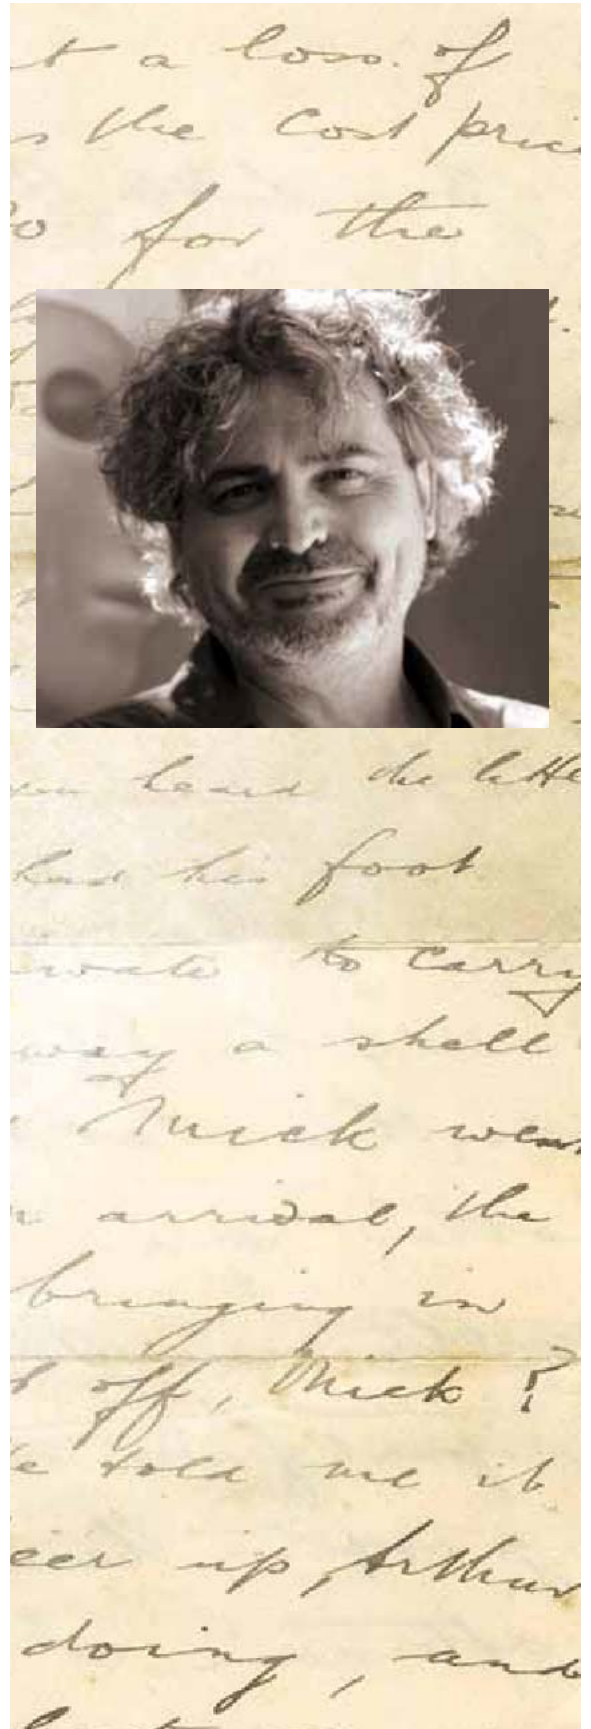 t a loss. of
s the cost pric
for the
heard the lette
had his foot
to carry
way a shell
of
Mick went
arrival, the
bringing in
off, Mick ?
told me it
eer up, Arthur
doing, and